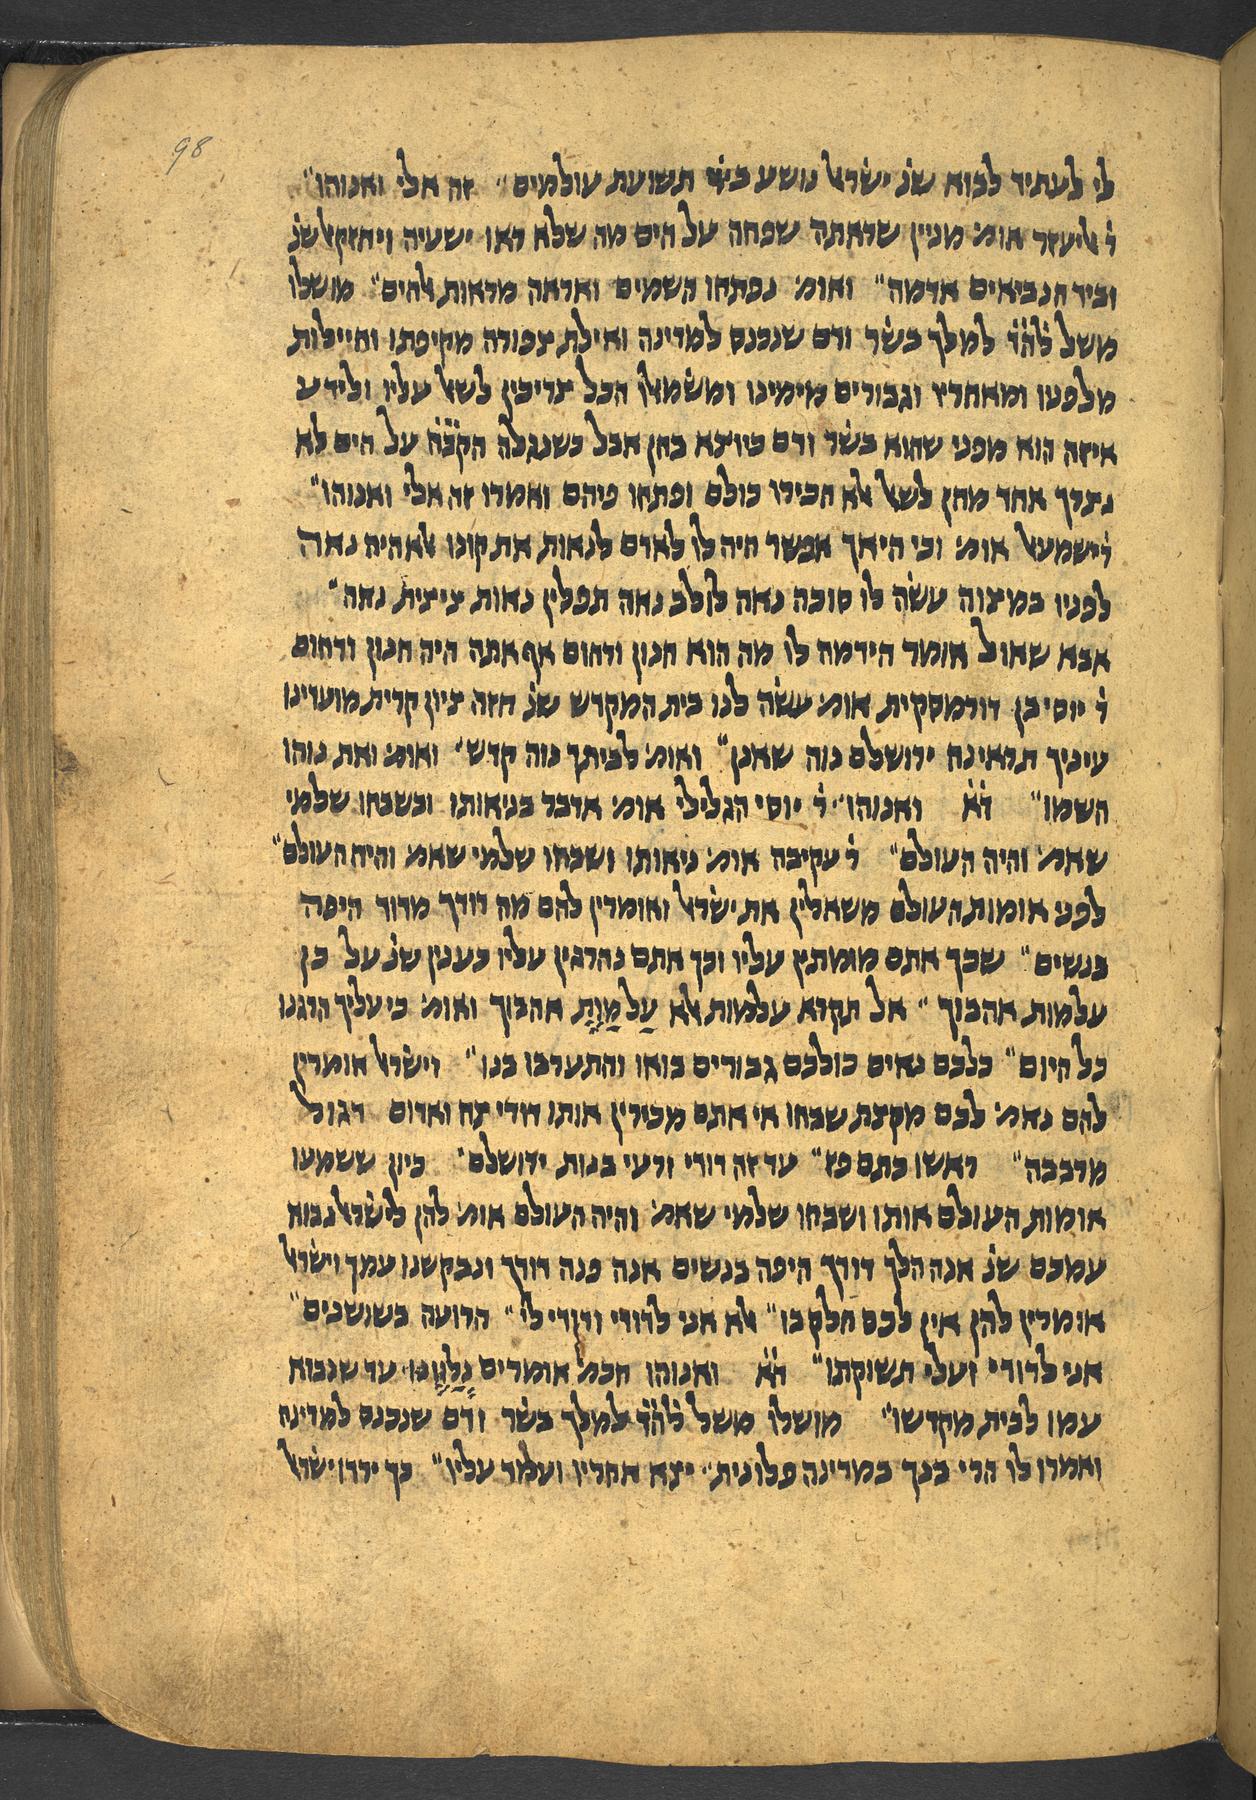 98
לי לעתיד לבוא שנ ישראל נושע ביי תשועת עולמים״ זה אלי ואנוהו״
ר׳ אליעזר אומ׳ מניין שראתה שפחה על הים מה שלא ראו ישעיה ויחזקאל שנ׳
וביד הנביאים אדמה״ ואומ׳ נפתחו השמים ואראה מראות אלהים״ מושלו
משל לה״ד למלך בשר ודם שנכנס למדינה ואילת צפורה מקיפתו וחיילות
מלפניו ומאחריו וגבורים מימינו ומשמאלו הכל צריכין לשאל עליו ולידע
איזה הוא מפני שהוא בשר ודם כיוצא בהן אבל כשנגלה הקב״ה על הים לא
נצרך אחד מהן לשאל אלא הכירו כולם ופתחו פיהם ואמרו זה אלי ואנוהו״
ר׳ ישמעאל אומ׳ וכי היאך אפשר היה לו לאדם לנאות את קונו אלא היה נאה
לפניו במצוה עשה לו סוכה נאה לולב נאה תפלין נאות ציצית נאה״
אבא שאול אומר הידמה לו מה הוא חנון ורחום אף אתה היה חנון ורחום
ר׳ יוסי בן דורמסקית אומ׳ עשה לנו בית המקדש שנ׳ חזה ציון קרית מועדינו
עיניך תראינה ירושלם נוה שאנן״ ואומ׳ לביתך נוה קדש׳ ואומ׳ ואת נוהו
השמו״ ד״א ואנוהו׳׳ ר׳ יוסי הגלילי אומ׳ אדבר בניאותו ובשבחו שלמי
שאמ׳ והיה העולם״ ר׳ עקיבה אומ׳ ניאותו ושבחו שלמי שאמ׳ והיה העולם״
לפני אומות העולם משאלין את ישראל ואומרין להם מה דודך מדוד היפה
בנשים״ שכך אתם מומתין עליו וכך אתם נהרגין עליו כענין שנ׳ על כן
עלמות אהבוך״ אל תקרא עלמות אלא על מות אהבוך ואומ׳ כי עליך הורגנו
כל היום״ כלכם נאים כולכם גבורים בואו והתערבו בנו״ וישראל אומרין
להם נאמ׳ לכם מקצת שבחו אי אתם מכירין אותו דודי צח ואדום דגול
מרבבה״ ראשו כתם פז״ עד זה דודי ורעי בנות ירושלם״ כיון ששמעו
אומות העולם אותו ושבחו שלמי שאמ׳ והיה העולם אומ׳ להן לישראל נבוא
עמכם שנ׳ אנה הלך דודך היפה בנשים אנה פנה דודך ונבקשנו עמך וישראל
אומרין להן אין לכם חלק בו״ אלא אני לדודי ודודי לי״ הרועה בשושנים״
אני לדודי ועלי תשוקתו״ ד״א ואנוהו חכמ׳ אומרים נלונו עד שנבוא
עמו לבית מקדשו״ מושלו משל לה״ד למלך בשר ודם שנכנס למדינה
ואמרו לו הרי בנך במדינה פלונית׳׳ יצא אחריו ועמד עליו״ כך ירדו ישראל